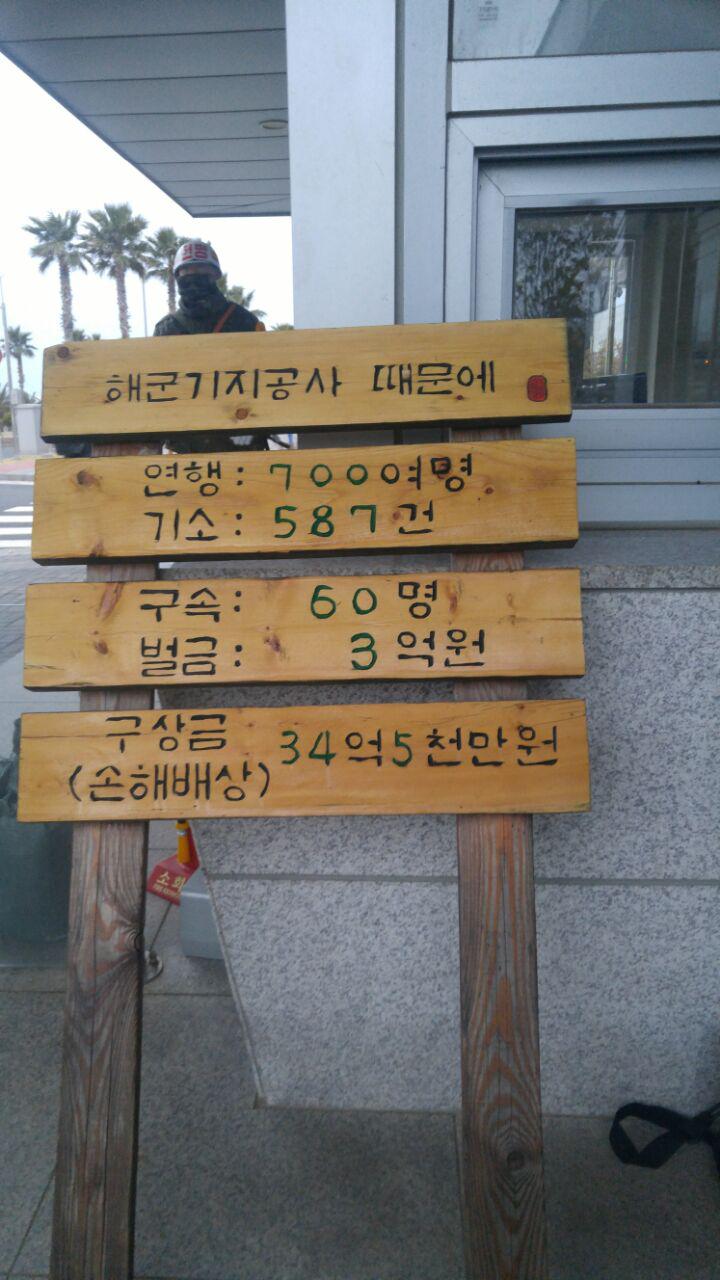 해군기지공사 때문에
연행: 700여명
기소: 587건
구속: 60명
벌금: 3억원
구상금 34억5천만원
(손해배상)
소화